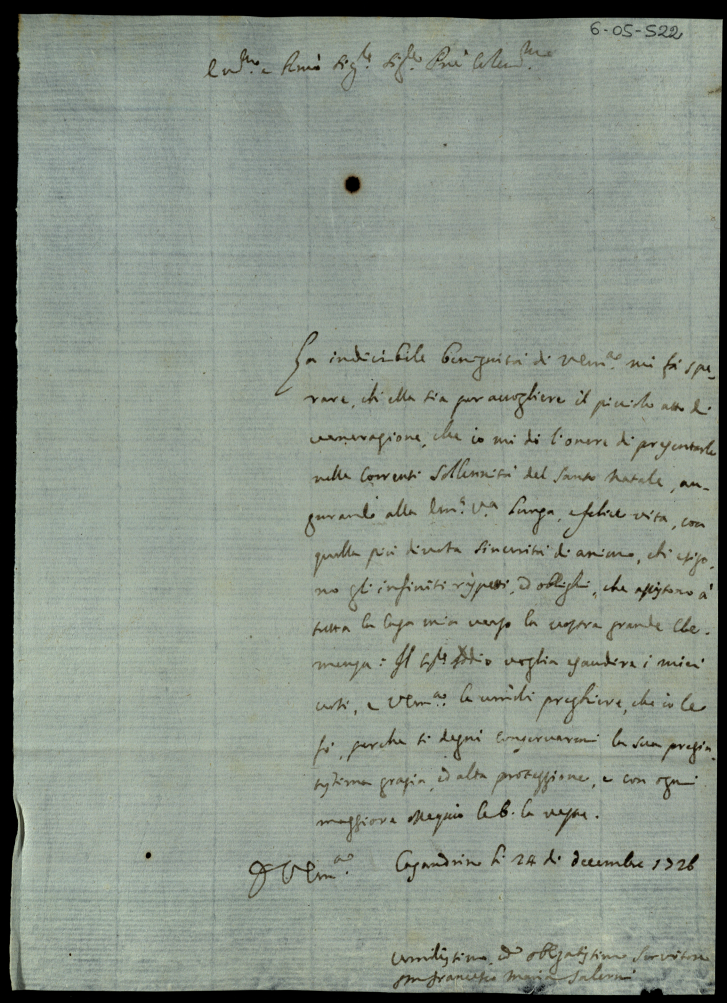 6-05-S22
Em.mo e Rmo Sig.re Sig.re Pne Colen.mo
La indicibile benignità di VEm.za mi fà spe-
rare, che ella sia per accogliere il piciolo atto di
veneragione, che io mi dò l'onore di presentarle
nelle correnti sollennità del Santo Natale, au-
gurando alla Em.a V.a lunga, e felice vita, con
quella più divota sincerità di animo, che esigo-
no gli infiniti rispetti, ed oblighi, che assistono à
tutta la Casa mia verso la vostra grande Cle-
menza: Il Sig.re Iddio voglia esaudire i miei
voti, e VEm.za le umili preghiere, che io le
fò, perche si degni conservarmi la sua pregia-
tissima grazia, ed alta protezzione, e con ogni
maggiore ossequio le b. la veste.
D VEm.za Casandrino li 24 di decembre 1726
umilissimo, ed obligatissimo Servitore
Francesco Maria Salerni